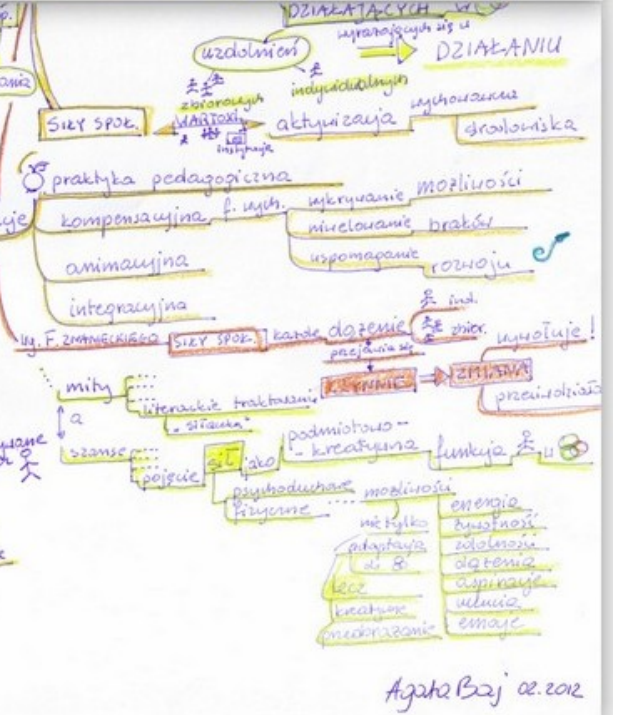 DZIAŁAJĄCYCH
wyrażających się w
DZIAŁANIU
uzdolnień
zbiorowych
indywidualnych
WARTOŚCI
instytucje
SIŁY SPOŁ.
aktywizacja
wychowawcza
środowiska
praktyka pedagogiczna
kompensacyjna f. wych.
wykrywanie możliwości
niwelowanie braków
wspomaganie rozwoju
animacyjna
integracyjna
wg. F. ZNANIECKIEGO SIŁY SPOŁ. każde dążenie
ind.
zbior.
przejawia się
ZMIANA
wywołuje!
mity
literackie traktowanie
"siłaczka"
a
szanse
pojęcie sił jako
podmiotowo-
- kreatywna funkcja
w
psychoduchowe
fizyczne
możliwości
nie tylko
adaptacja
do
lecz
kreatywne
przeobrażanie
energia
żywotność
zdolności
dążenia
aspiracje
uczucia
emocje
Agata Baj 02.2012